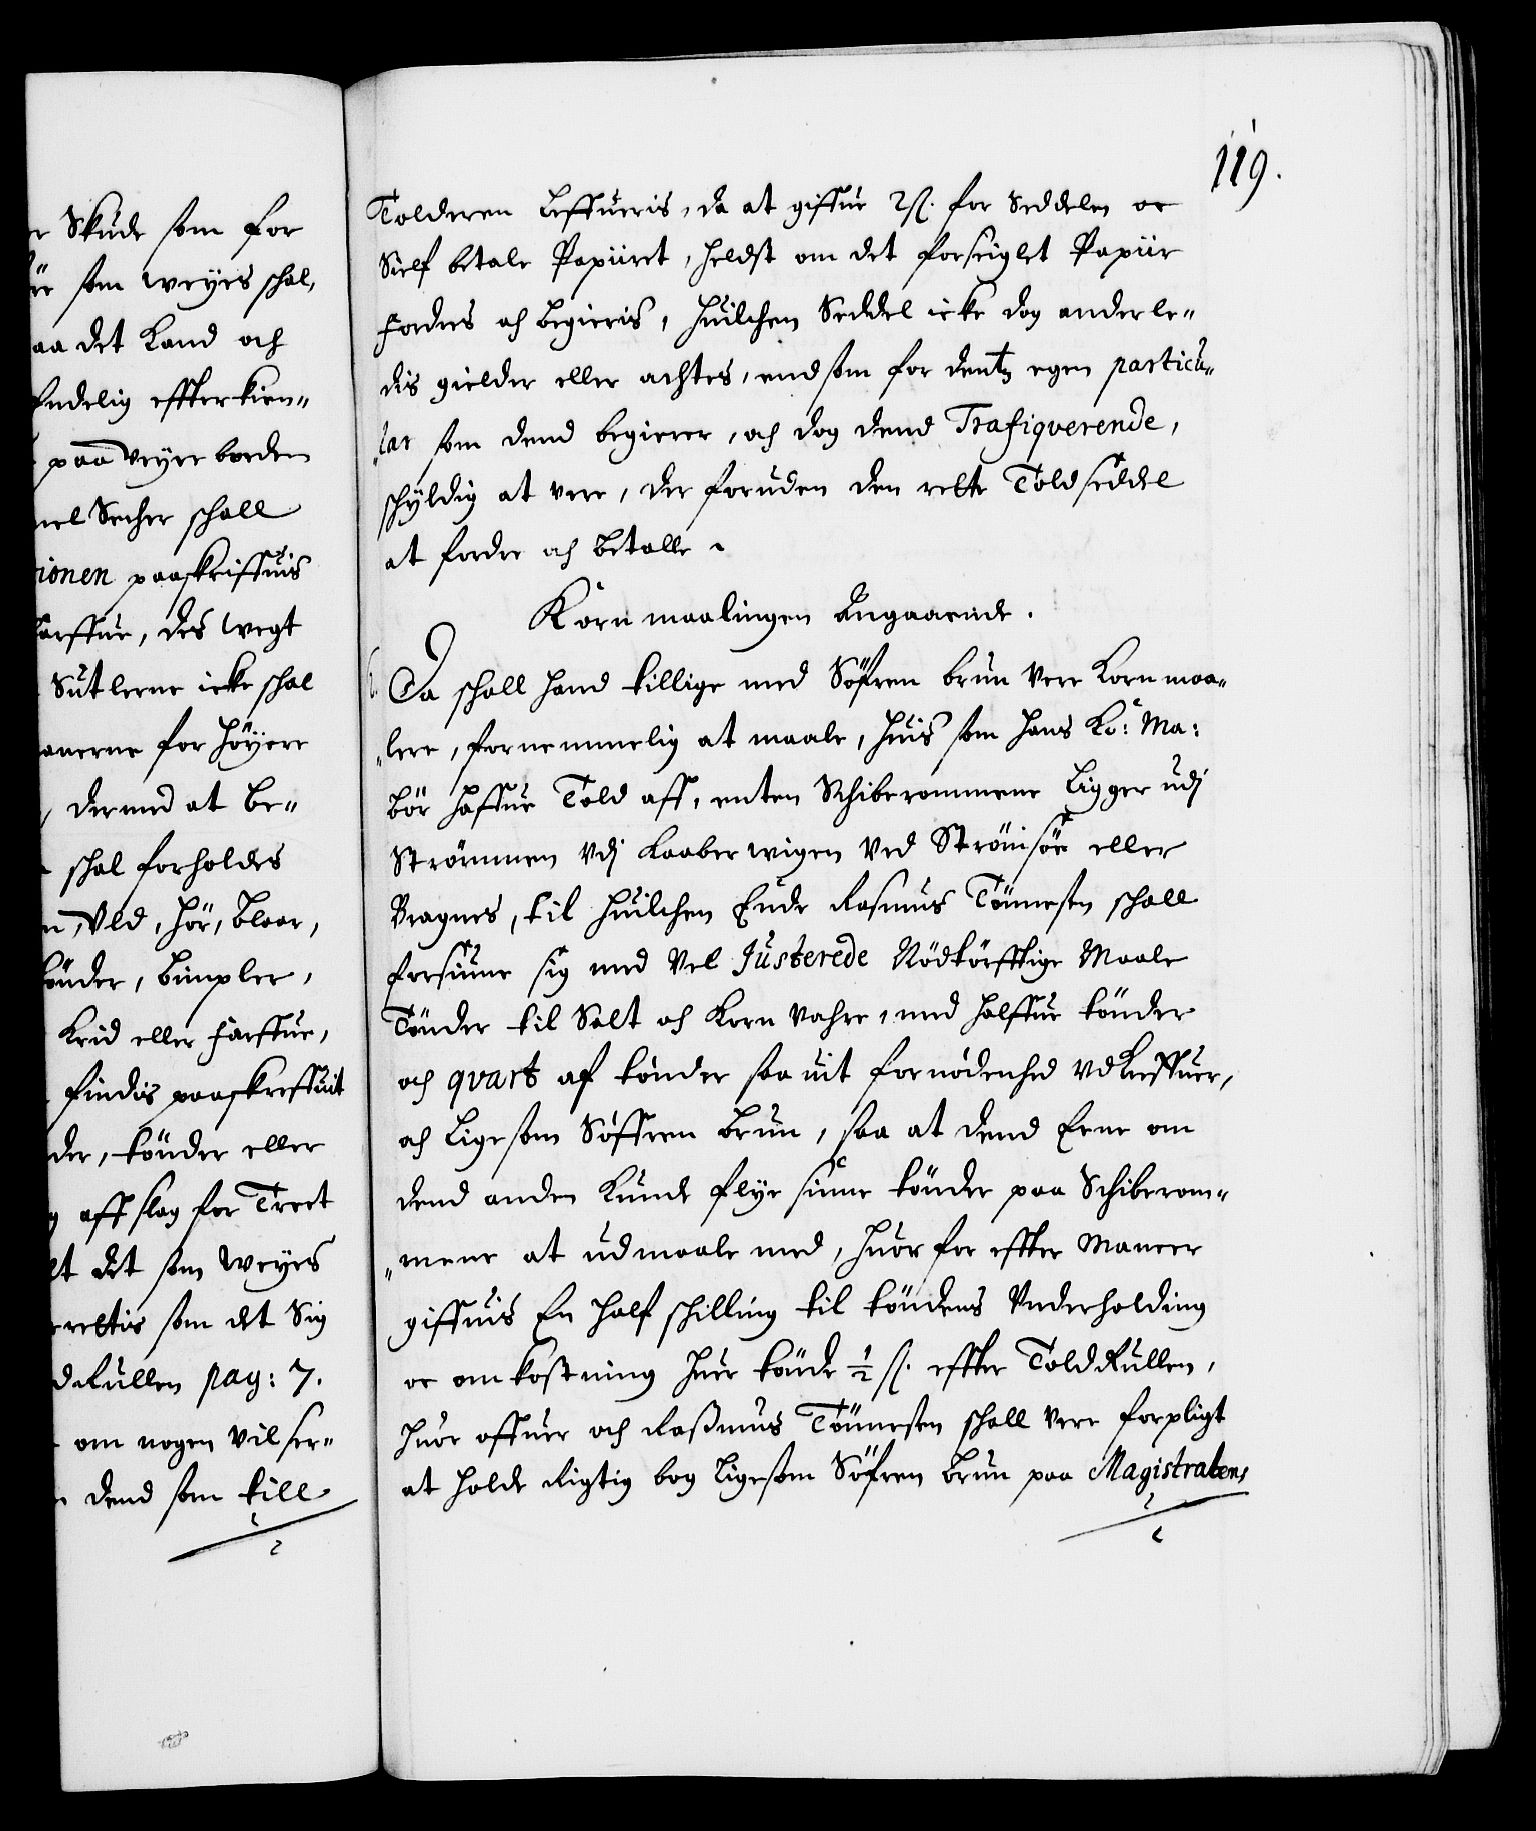 r Skude som for
som weyes schal,
aa det Land och
Endelig effterkien„
paa veyer boeden
nel Secher schall
tionen paaskriffuis
arffue, des wegt
Sutlerne icke schal
anerne for höyere
dermed at be„
schal forholdes
n, Vld, Hör, Blaar,
önder, Bimpler,
Krid eller Farffue,
findis paaskreffuit
der, tönder eller
g affslag for Treet
lt det som weyes
rettis som det Sig
dRullen pag: 7.
om nogen vil ser„
dend som till
119.
Tolderen leffueris, da at giffue 2 ß. for Seddelen oc
Sielf betale Papiiret, heldst om det forseiglet Papiir
fordres och begieris, huilchen Seddel icke dog anderle„
dis gielder eller achtes, end som for dents egen particu„
„lar som dend begierer, och dog dend Trafiqverende,
schyldig at vere, der foruden den rette Toldseddel
at fordre och betalle.
Korn maalingen Angaaende.
Da schall hand tillige med Söfren brun vere Korn maa„
„lere, fornemmelig at maale, huis som Hans Ko: Ma:
bör haffue Told aff, enten Schiberommene ligger udj
Strömmen Vdj Kaaberwigen Ved Strömsöe eller
Bragnes, til huilchen Ende Rasmus Tönnesen schall
forsiune sig med Vel Justerede Nödtörfftige Maale
Tönder til Salt och Korn Vahre, med halffue tönder
och qvart af tönder saa uit fornödenhed Vdkreffuer,
och ligesom Söffren Brun, saa at dend Eene om
dend anden Kunde flye sinne tönder paa Schiberom„
„mene at udmaale med, huor for effter Maneer
giffuis En half schilling til töndens Vnderholding
oc omkostning huer tönde ½ ß. effter ToldRullen,
huor offuer och Rasmus Tönnesen schall vere forpligt
at holde Rigtig bog ligesom Söfren brun paa Magistratens